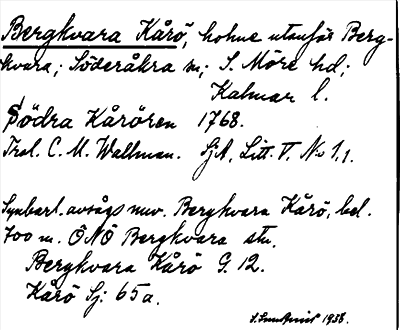 Bergkvara Kårö, holme utanför Berg-
kvara; Söderåkra sn; S. Möre hd;
Kalmar l.
Södra Kårören 1768.
Trol. C. M. Wallman. SjA, Litt. V. No 1,1.
Synbarl. avsågs nuv. Bergkvara Kårö, bel.
700 m. ÖNÖ Bergkvara stn.
Bergkvara Kårö G. 12.
Kårö Sj: 65a.
1938.